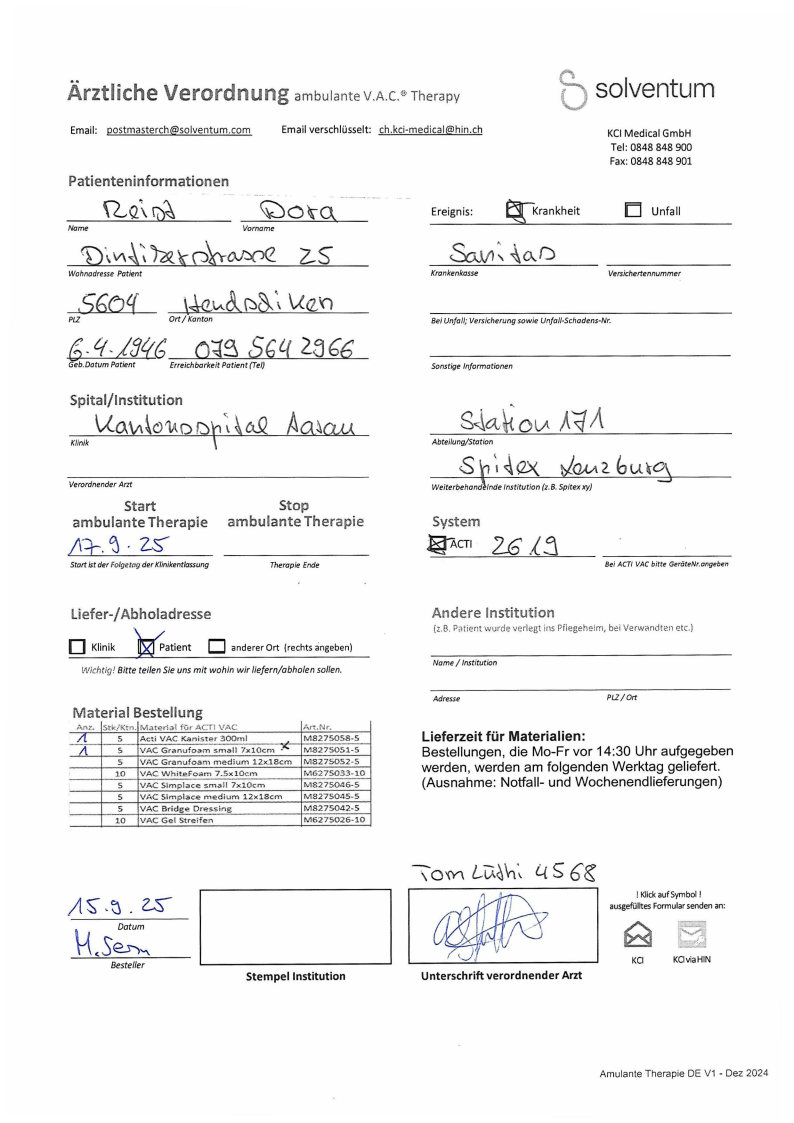 Ärztliche Verordnung ambulante V.A.C.® Therapy
solventum
Email: postmasterch@solventum.com Email verschlüsselt: ch.kci-medical@hin.ch
KCI Medical GmbH
Tel: 0848 848 900
Fax: 0848 848 901
Patienteninformationen
Dora
Name Vorname
Ereignis: Krankheit Unfall
25
Wohnadresse Patient
Sanitas
Krankenkasse Versichertennummer
5604 Hendschiken
PLZ Ort / Kanton
Bei Unfall; Versicherung sowie Unfall-Schadens-Nr.
6.4.1946 079 564 2966
Geb.Datum Patient Erreichbarkeit Patient (Tel)
Sonstige Informationen
Spital/Institution
Kantonsspital Aarau
Klinik
Station 171
Abteilung/Station
Verordnender Arzt
Spitex Lenzburg
Weiterbehandelnde Institution (z.B. Spitex xy)
Start ambulante Therapie
Stop ambulante Therapie
System
17.9.25
Start ist der Folgetag der Klinikentlassung Therapie Ende
ACTI 2619
Bei ACTI VAC bitte GeräteNr.angeben
Liefer-/Abholadresse
Klinik Patient anderer Ort (rechts angeben)
Wichtig! Bitte teilen Sie uns mit wohin wir liefern/abholen sollen.
Andere Institution
(z.B. Patient wurde verlegt ins Pflegeheim, bei Verwandten etc.)
Name / Institution
Adresse PLZ / Ort
Material Bestellung
Anz. Stk/Ktn. Material für ACTI VAC Art.Nr.
1 5 Acti VAC Kanister 300ml M8275058-5
1 5 VAC Granufoam small 7x10cm x M8275051-5
5 VAC Granufoam medium 12x18cm M8275052-5
10 VAC WhiteFoam 7.5x10cm M6275033-10
5 VAC Simplace small 7x10cm M8275046-5
5 VAC Simplace medium 12x18cm M8275045-5
5 VAC Bridge Dressing M8275042-5
10 VAC Gel Streifen M6275026-10
Lieferzeit für Materialien:
Bestellungen, die Mo-Fr vor 14:30 Uhr aufgegeben
werden, werden am folgenden Werktag geliefert.
(Ausnahme: Notfall- und Wochenendlieferungen)
Tom Lüthi 4568
15.9.25
Datum
Besteller
Stempel Institution
Unterschrift verordnender Arzt
! Klick auf Symbol !
ausgefülltes Formular senden an:
KCI KCI via HIN
Amulante Therapie DE V1 - Dez 2024